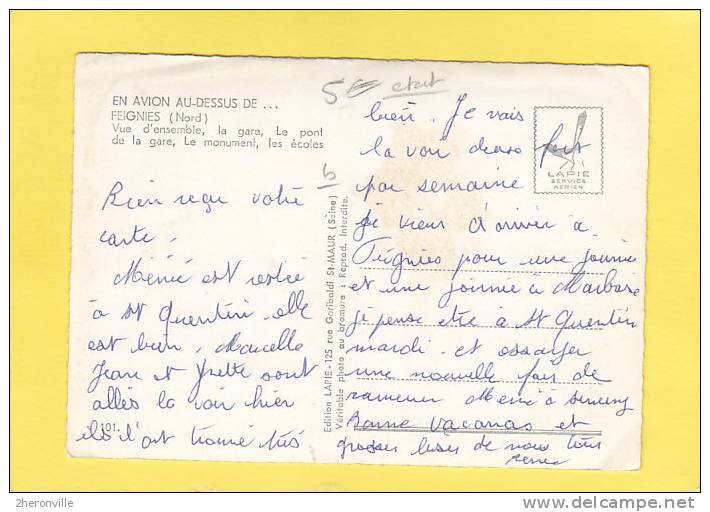 EN AVION AU-DESSUS DE ...
FEIGNIES (Nord)
Vue d'ensemble, la gare, Le pont
de la gare, Le monument, les écoles
Bien reçu votre
carte.
Mémé est restée
à St Quentin. elle
est bien. Marcelle
Jean et Yvette sont
allés la voir hier
101.
ils l'ont trouvé très
Edition LAPIE - 125 rue Garibaldi St-MAUR (Seine)
Véritable photo au bromure : Reprod. Interdite.
5€ etat
b
bien. Je vais
la voir deux fois
par semaine
je viens d'arriver à
Feignies pour une journée
et une journée à
je pense être à St Quentin
mardi et essayer
une nouvelle fois de
ramener Mémé à
Bonne Vacances et
grosses bises de nous tous
Renée
LAPIE
SERVICE
AERIEN
2heronville
delcampe.net